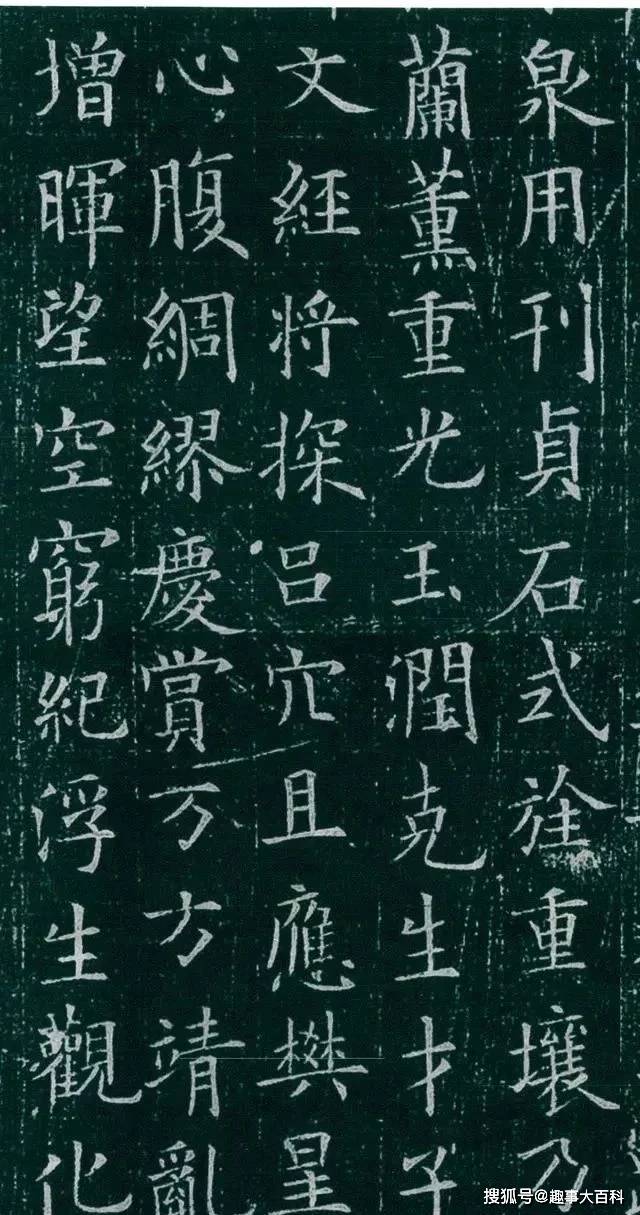 泉用刊貞石式旌重壤乃
蘭薰重光玉潤克生才子
文經将探吕穴且應樊星
心腹綢繆慶賞万方靖亂
增暉望空窮紀浮生觀化
搜狐号@趣事大百科